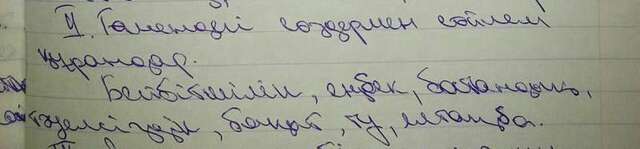 II. Төмендегі сөздермен сөйлем
құраңдар.
Бейбітшілік, еңбек, бостандық,
тәуелсіздік, бақыт, ту, елтаңба.